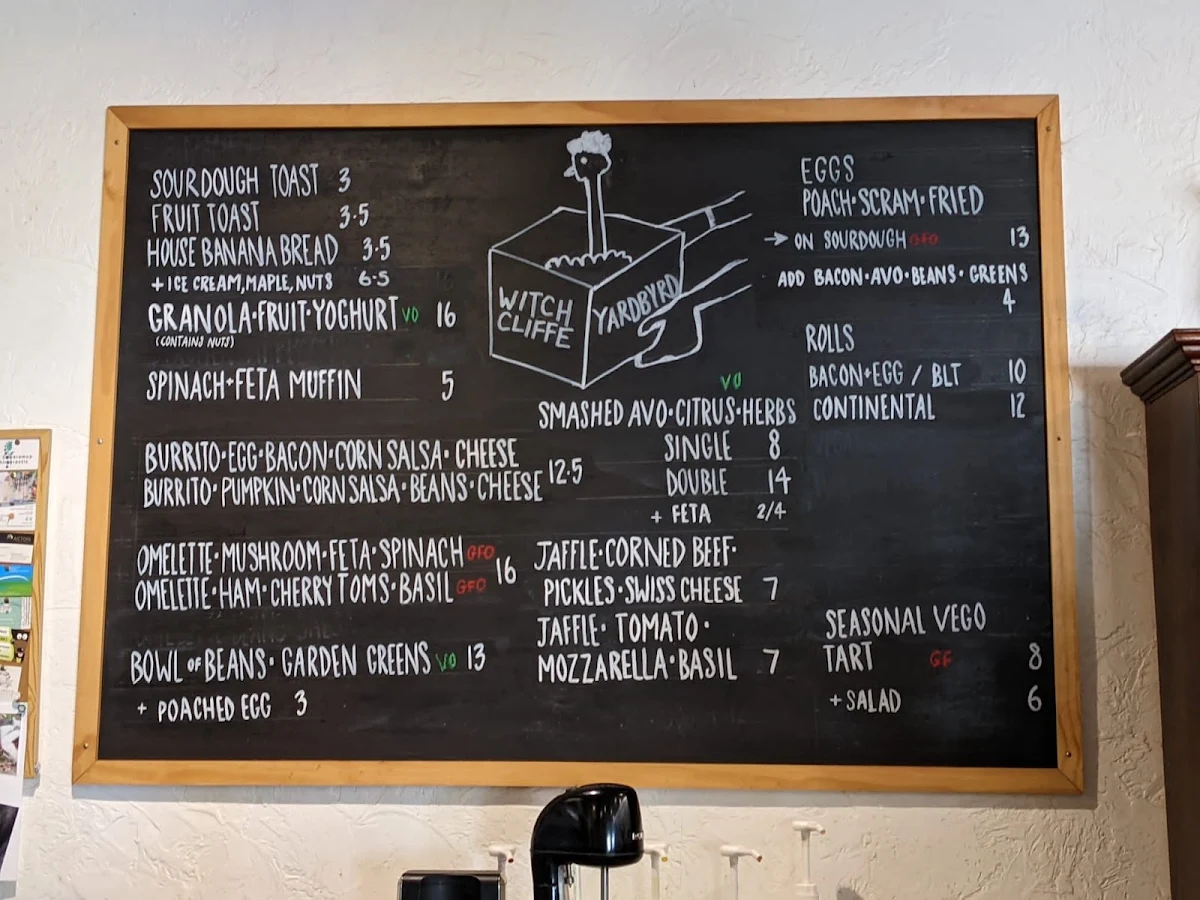 SOURDOUGH TOAST 3
FRUIT TOAST 3.5
HOUSE BANANA BREAD 3.5
+ ICE CREAM, MAPLE, NUTS 6.5
GRANOLA·FRUIT·YOGHURT VO 16
(CONTAINS NUTS)
SPINACH+FETA MUFFIN 5
BURRITO·EGG·BACON·CORN SALSA·CHEESE
BURRITO·PUMPKIN·CORN SALSA·BEANS·CHEESE 12.5
OMELETTE·MUSHROOM·FETA·SPINACH GFO
OMELETTE·HAM·CHERRY TOMS·BASIL GFO 16
BOWL OF BEANS·GARDEN GREENS VO 13
+ POACHED EGG 3
WITCH
CLIFFE
YARDBYRD
VO
SMASHED AVO·CITRUS·HERBS
SINGLE 8
DOUBLE 14
+ FETA 2/4
JAFFLE·CORNED BEEF·
PICKLES·SWISS CHEESE 7
JAFFLE·TOMATO·
MOZZARELLA·BASIL 7
EGGS
POACH·SCRAM·FRIED
→ ON SOURDOUGH GFO 13
ADD BACON·AVO·BEANS·GREENS
4
ROLLS
BACON+EGG / BLT 10
CONTINENTAL 12
SEASONAL VEGO
TART GF 8
+ SALAD 6